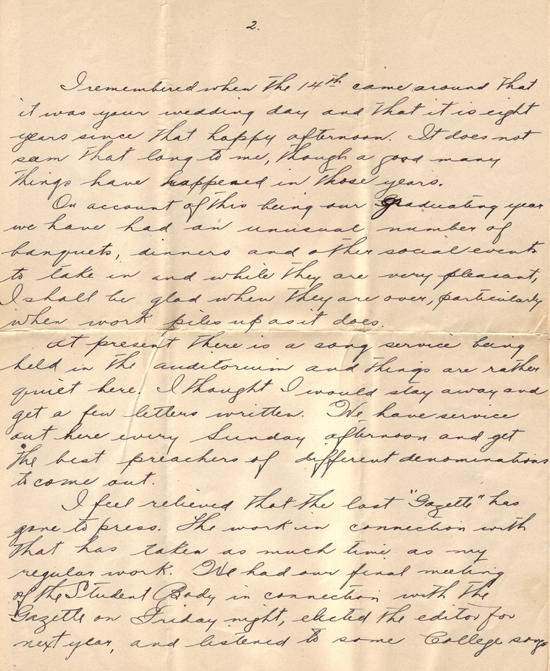 2.
I remembered when the 14th came around that
it was your wedding day and that it is eight
years since that happy afternoon. It does not
seem that long to me, though a good many
things have happened in those years.
On account of this being our graduating year
we have had an unusual number of
banquets, dinners and other social events
to take in and while they are very pleasant,
I shall be glad when they are over, particularly
when work piles up as it does.
At present there is a song service being
held in the auditorium and things are rather
quiet here. I thought I would stay away and
get a few letters written. We have service
out here every Sunday afternoon and get
the best preachers of different denominations
to come out.
I feel relieved that the last "Gazette" has
gone to press. The work in connection with
that has taken as much time as my
regular work. We had our final meeting
of the Student Body in connection with the
Gazette on Friday night, elected the editor for
next year, and listened to some College songs